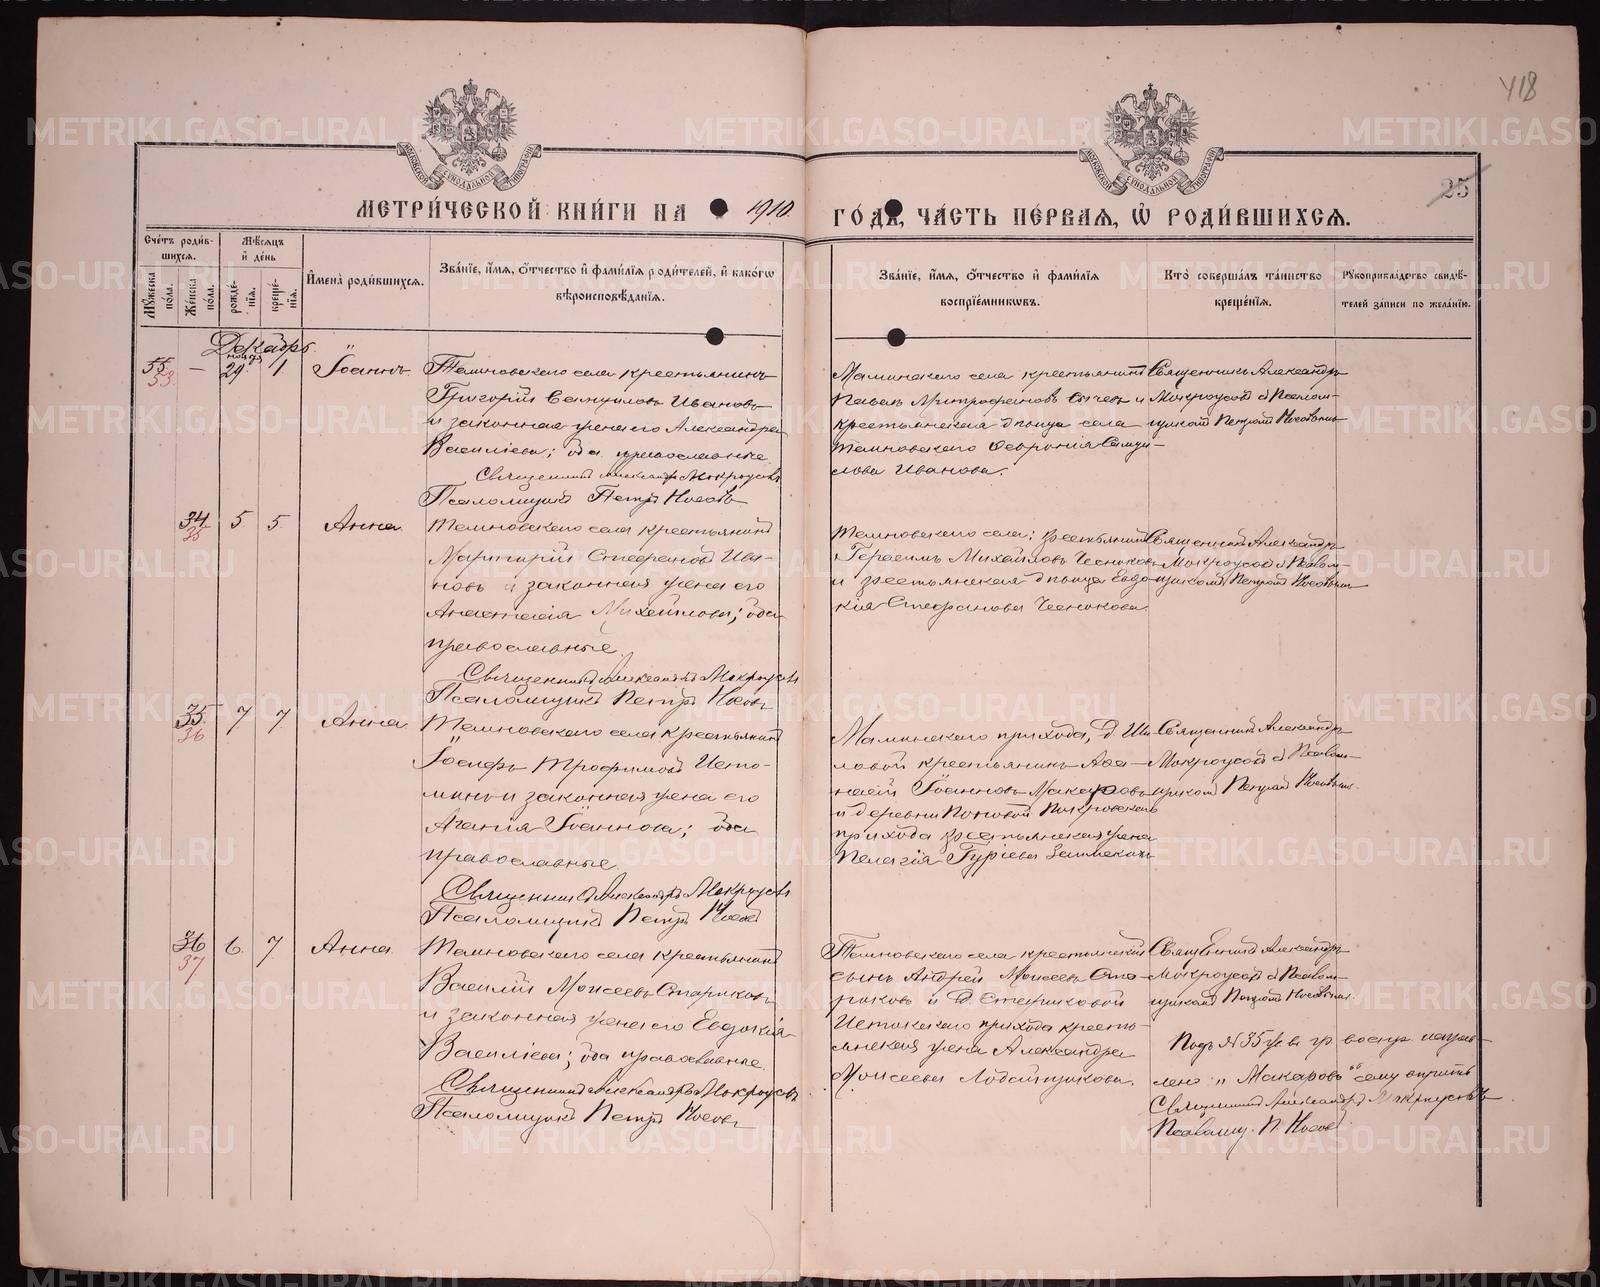 418
25
МЕТРИ́ЧЕСКОЙ КНИ́ГИ НА 1910.
ГО́ДЪ, ЧА́СТЬ ПЕ́РВАЯ, Ѽ РОДИ́ВШИХСЯ.
Сче́тъ роди́в-
шихся.
Мꙋ́жеска по́ла.
Же́нска по́ла.
Мѣ́сяцъ и҆ де́нь
рожде́-нїя.
креще́-нїя.
И҆мена̀ роди́вшихся.
Зва́нїе, и҆́мя, ѻ҆́тчество и҆ фами́лїя роди́телей, и҆ како́гѡ
вѣроисповѣ́данїя.
Зва́нїе, и҆́мя, ѻ҆́тчество и҆ фами́лїя
воспрїе́мникωвъ.
Кто̀ соверша́лъ та́инство
креще́нїя.
Рꙋкоприкла́дство свидѣ́-
телей за́писи по жела́нїю.
Декабрь.
55 — 29 1. Іоаннъ.
53
ноября
Темновского села крестьянинъ
Григорій Самуиловъ Ивановъ
и законная жена его Александра
Василіева; оба православные
Священникъ Александръ Мокроусовъ
Псаломщикъ Петръ Носовъ
Маминского села крестьянинъ
Павелъ Митрофановъ Сычевъ и
крестьянская дѣвица села
Темновского Феврония Самуи-
лова Иванова.
Священникъ Александръ
Мокроусовъ съ Псалом-
щикомъ Петромъ Носовымъ
34 5 5. Анна.
35
Темновского села крестьянинъ
Стефановъ Ива-
новъ и законная жена его
Анастасія Михайлова; оба
православные
Священникъ Александръ Мокроусовъ
Псаломщикъ Петръ Носовъ
Темновского села: крестьянинъ
Герасимъ Михайловъ Чесноковъ
и крестьянская дѣвица Евдо-
кія Стефанова Чеснокова
Священникъ Александръ
Мокроусовъ съ Псалом-
щикомъ Петромъ Носовымъ
35 7 7. Анна.
36
Темновского села крестьянинъ
Іосифъ Трофимовъ Исто-
минъ и законная жена его
Агапія Іоаннова; оба
православные
Священникъ Александръ Мокроусовъ
Псаломщикъ Петръ Носовъ
Маминского прихода, д. Ши-
ловой крестьянинъ Афа-
насій Іоанновъ Макаровъ
и деревни Поповой Покровского
прихода крестьянская жена
Пелагія Гуріева
Священникъ Александръ
Мокроусовъ съ Псалом-
щикомъ Петромъ Носовымъ.
36 6. 7 Анна.
37
Темновского села крестьянинъ
Василій Моисеевъ Стариковъ
и законная жена его Евдокія
Василіева; оба православные.
Священникъ Александръ Мокроусовъ
Псаломщикъ Петръ Носовъ
Темновского села крестьянскій
сынъ Андрей Моисеевъ Ста-
риковъ и д. Стариковой
Истокского прихода кресть-
янская жена Александра
Моисеева Лобатщикова.
Священникъ Александръ
Мокроусовъ съ Псалом-
щикомъ Петромъ Носовымъ.
Подъ № 35 гр воспр исправ-
лено: „Макаровъ"
Священникъ Александръ Мокроусовъ
Псаломщ. П. Носовъ